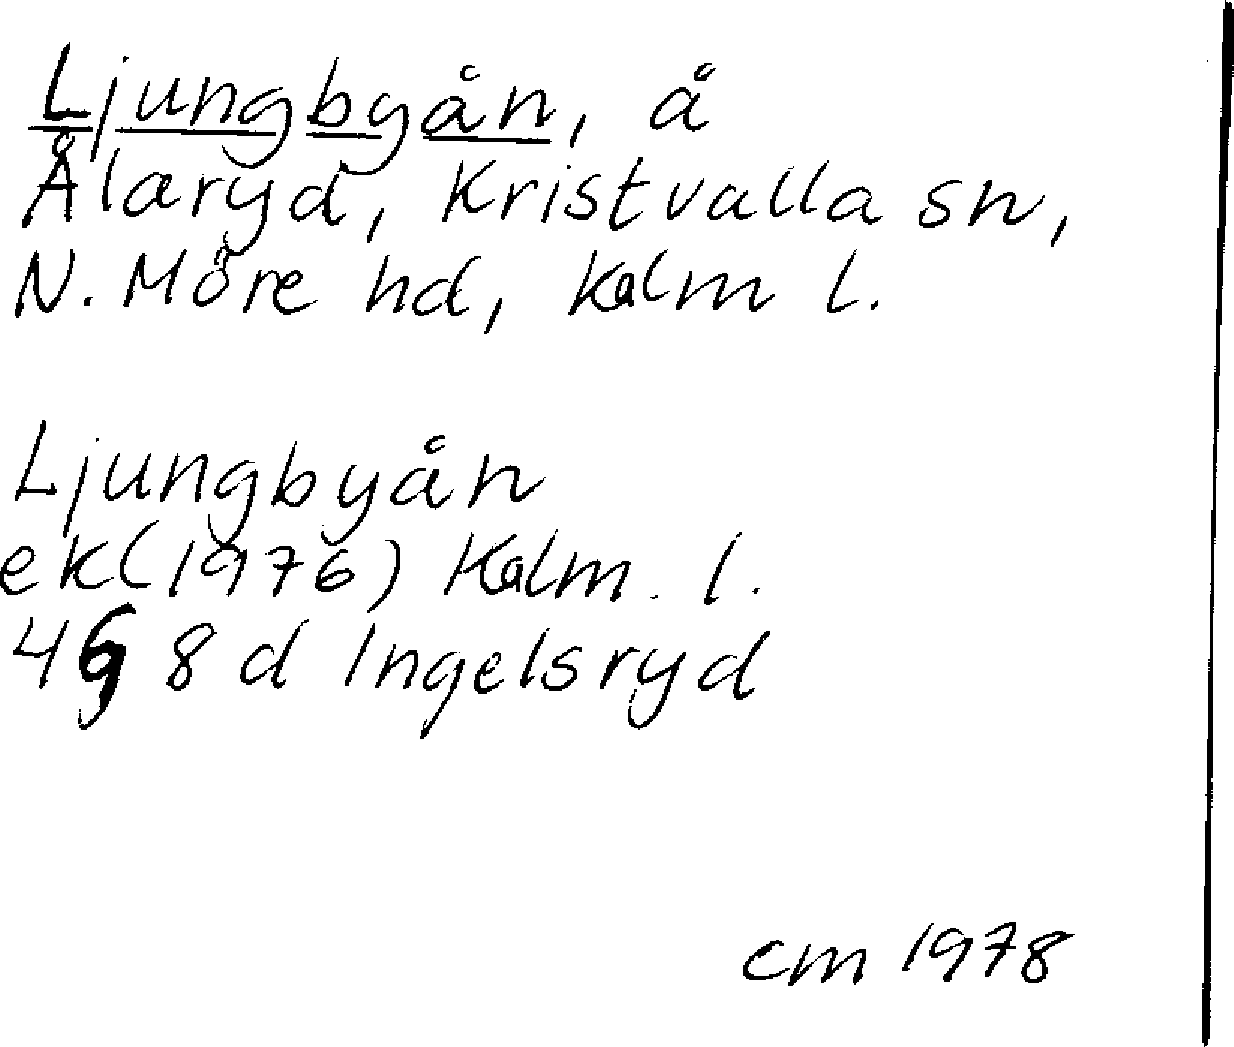 Ljungbyån, å
Ålaryd, Kristvalla sn,
N. Möre hd, Kalm l.
Ljungbyån
ek (1976) Kalm. l.
4G 8d Ingelsryd
cm 1978